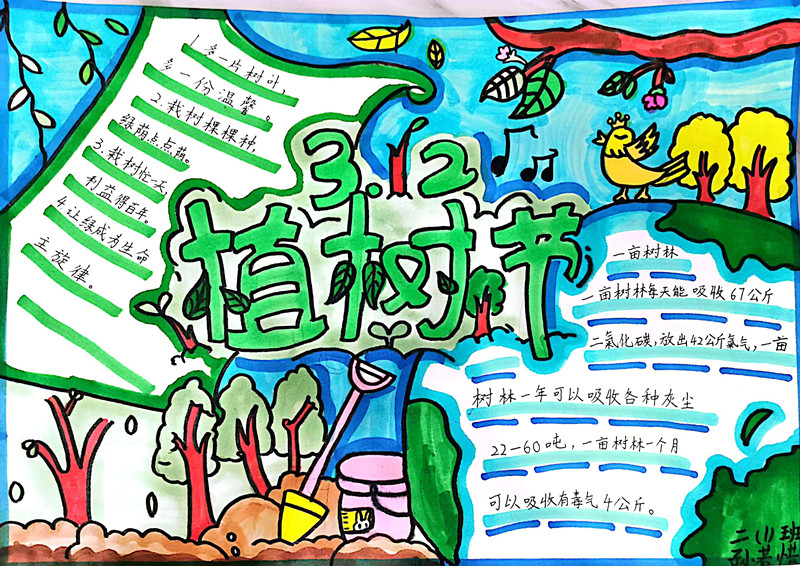 1.多一片树叶，
多一份温馨。
2.栽树棵棵种，
绿荫点点荫。
3.栽树忙一天，
利益得百年。
4.让绿成为生命
主旋律。
3.12
植树节
一亩树林
一亩树林每天能吸收67公斤
二氧化碳，放出42公斤氧气，一亩
树林一年可以吸收各种灰尘
22—60吨，一亩树林一个月
可以吸收有毒气4公斤。
二(1)班
孙若